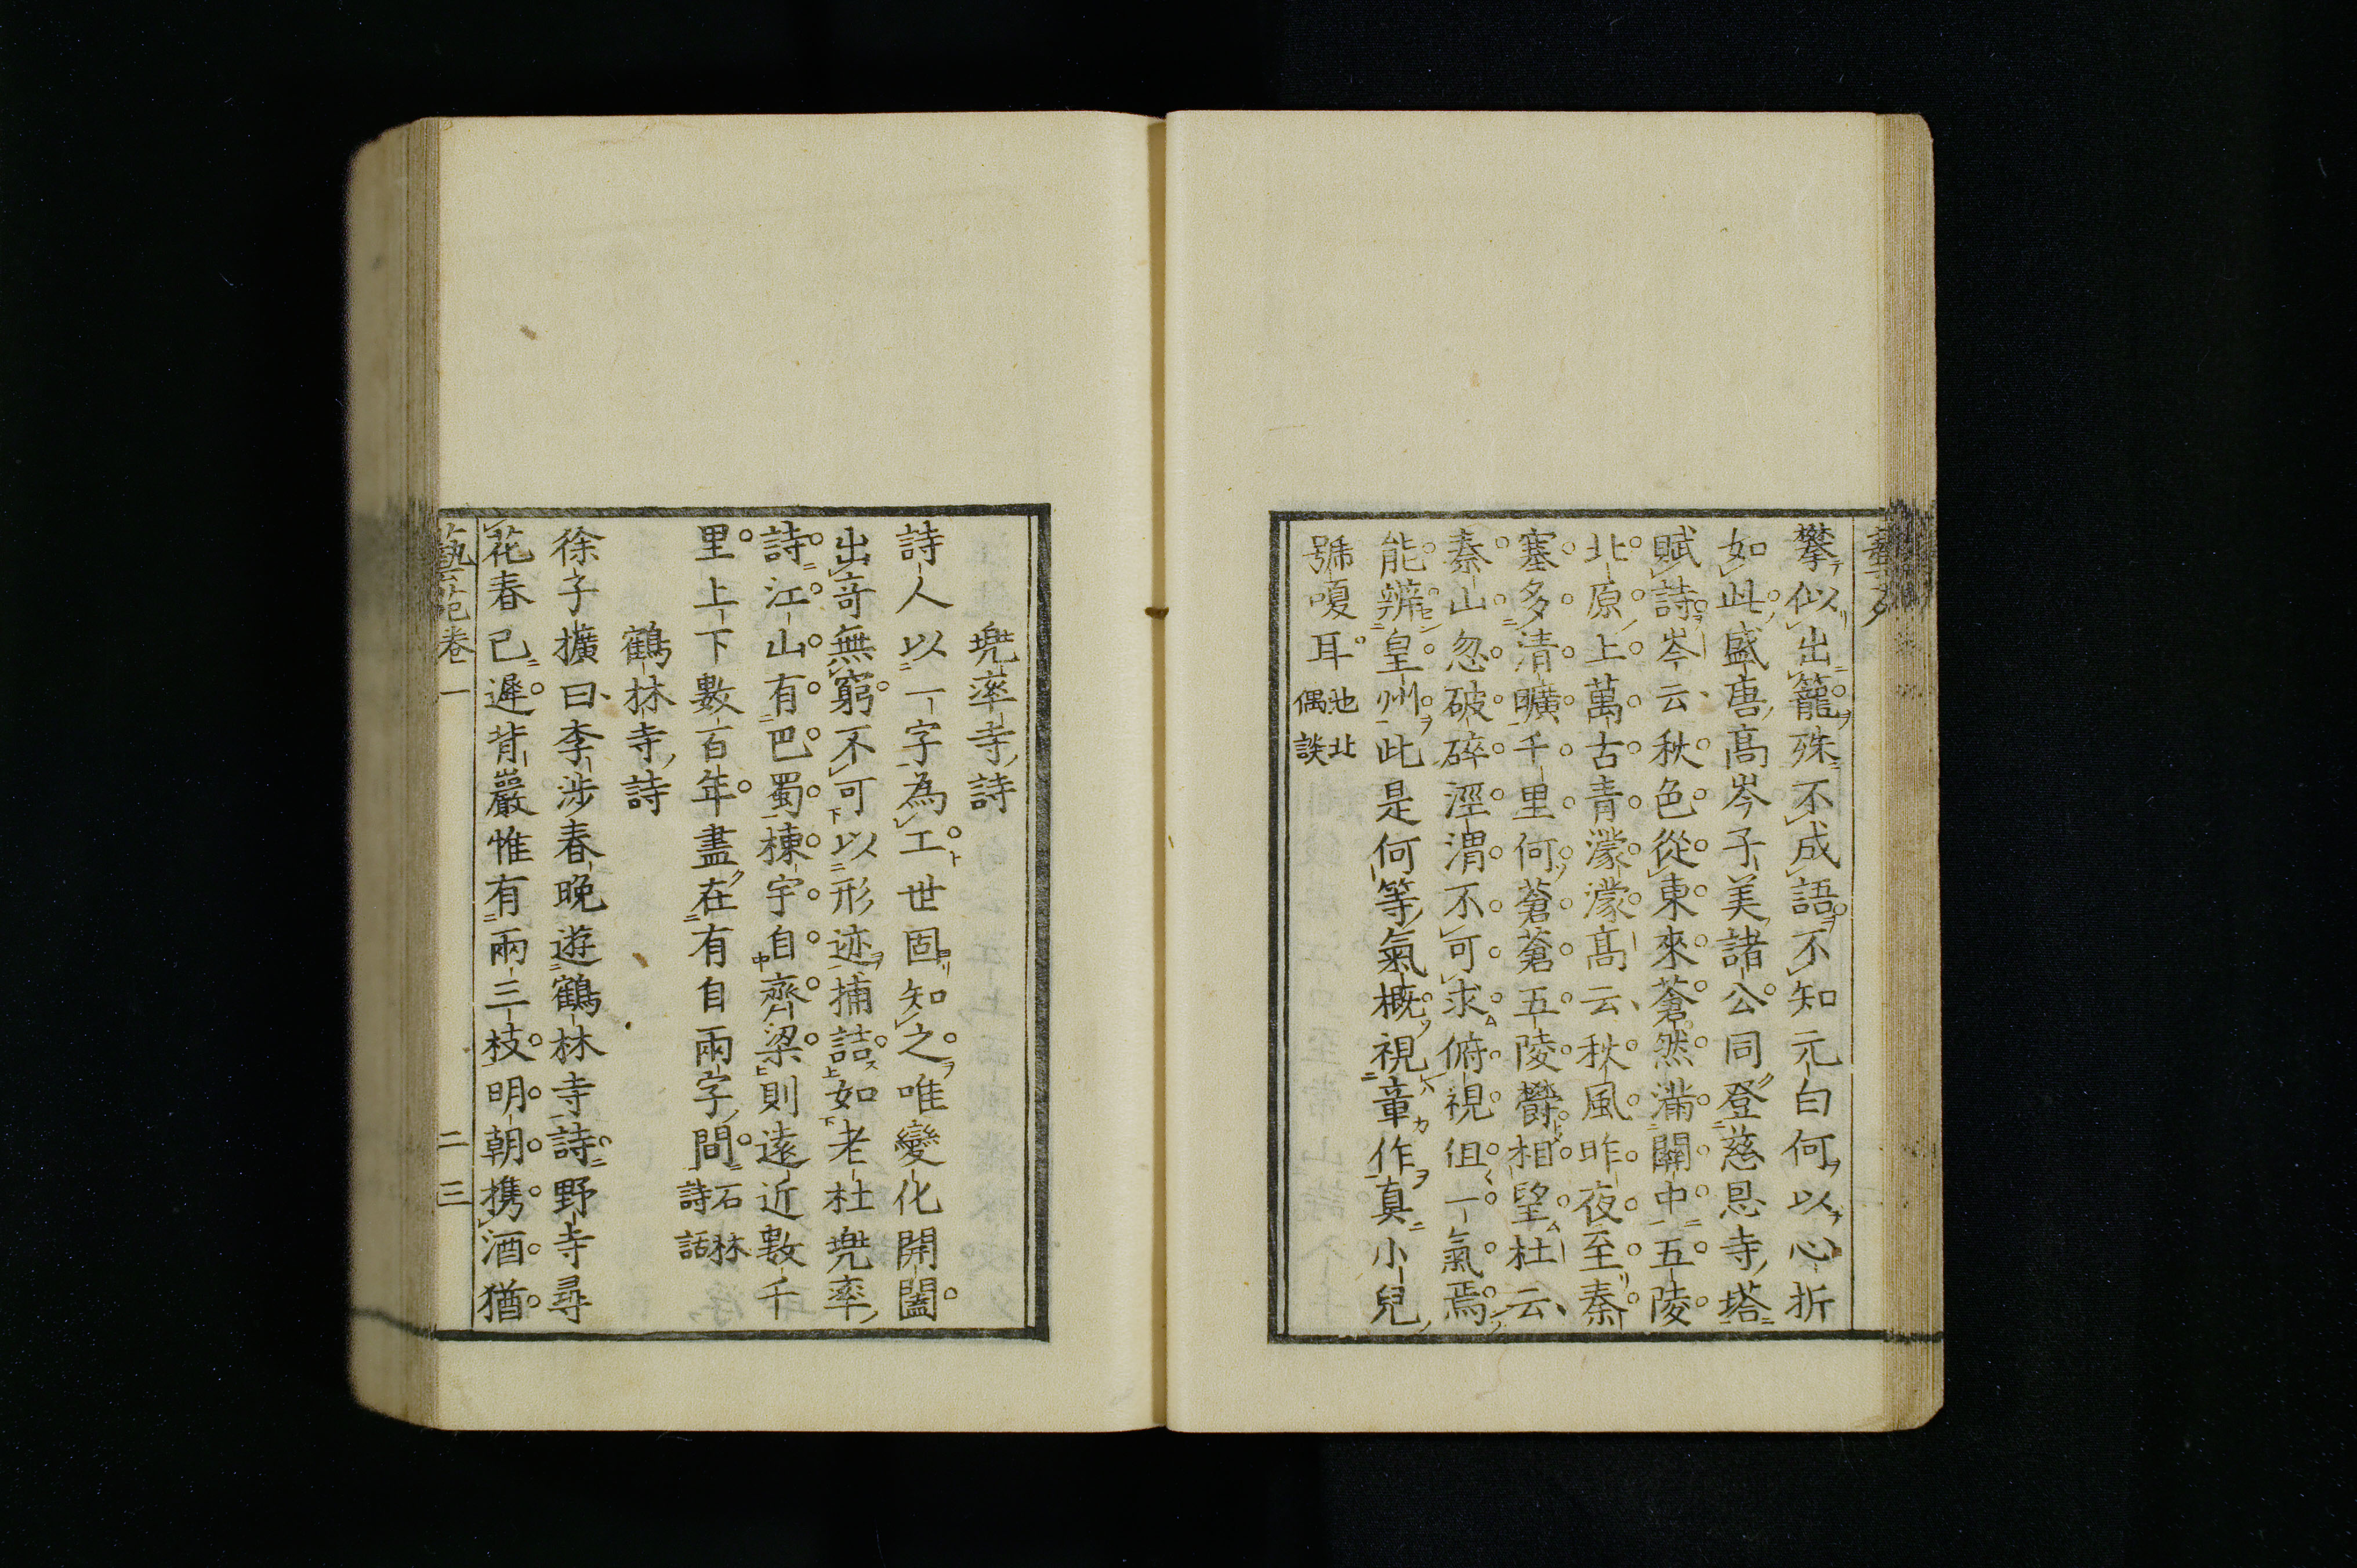 攀似出籠殊不成語不知元白何以心折
如此盛唐高岑子美諸公同登慈恩寺塔
賦詩岑云秋色從東來蒼然滿關中五陵
北原上萬古青濛濛高云秋風昨夜至秦
塞多清曠千里何蒼蒼五陵鬱相望杜云
秦山忽破碎涇渭不可求俯視但一氣焉
能辨皇州此是何等氣概視章作真小兒
號嗄耳 池北偶談
兜率寺詩
詩人以一字為工世固知之唯變化開闔
出奇無窮不可以形迹捕詰如老杜兜率
詩江山有巴蜀棟宇自齊梁則遠近數千
里上下數百年盡在有自兩字間 石林詩話
鶴林寺詩
徐子擴曰李涉春晚遊鶴林寺詩野寺尋
花春已遲背巖惟有兩三枝明朝携酒猶
藝苑卷一 二三